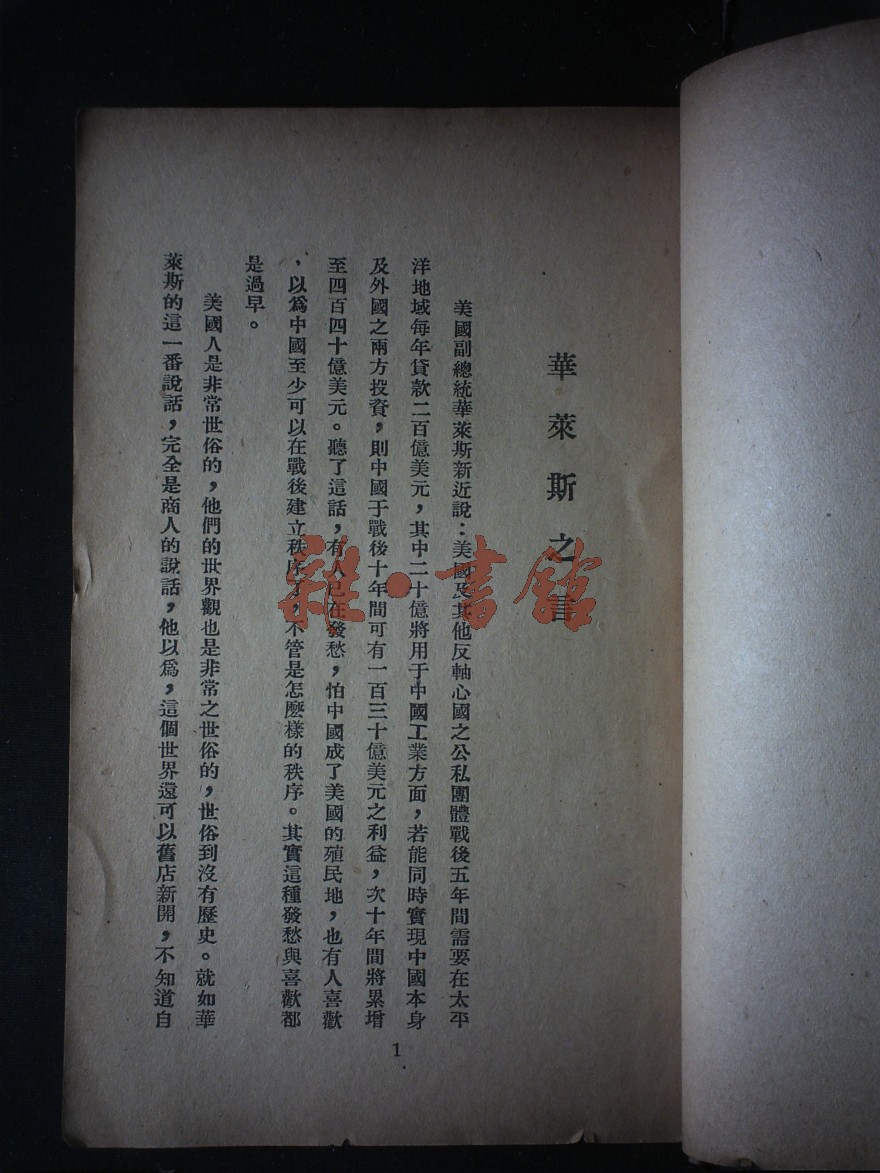 華萊斯之言
美國副總統華萊斯新近說：美國及其他反軸心國之公私團體戰後五年間需要在太平
洋地域每年貸款二百億美元，其中二十億將用于中國工業方面，若能同時實現中國本身
及外國之兩方投資，則中國于戰後十年間可有一百三十億美元之利益，次十年間將累增
至四百四十億美元。聽了這話，有人已在發愁，怕中國成了美國的殖民地，也有人喜歡
，以爲中國至少可以在戰後建立秩序了，不管是怎麽樣的秩序。其實這種發愁與喜歡都
是過早。
美國人是非常世俗的，他們的世界觀也是非常之世俗的，世俗到沒有歷史。就如華
萊斯的這一番說話，完全是商人的說話，他以爲，這個世界還可以舊店新開，不知道自
1
雜·書館